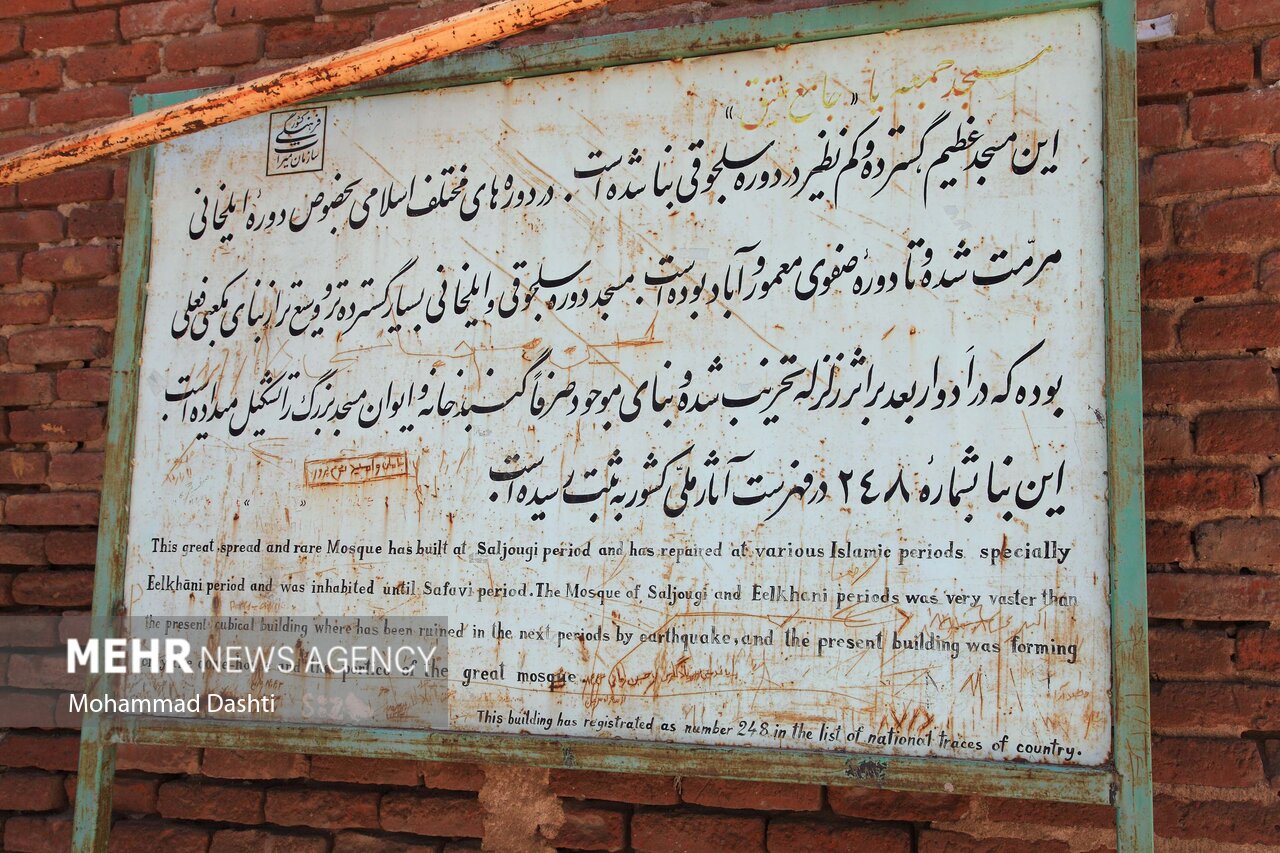 مسجد جمعه یا «جامع عتیق»
سازمان میراث فرهنگی کشور
این مسجد عظیم، گسترده و کم نظیر در دوره سلجوقی بنا شده است. در دوره های مختلف اسلامی بخصوص دورهٔ ایلخانی
مرمّت شده و تا دورهٔ صفوی معمور و آباد بوده است. مسجد دوره سلجوقی و ایلخانی بسیار گسترده تر و وسیع تر از بنای مکعبی فعلی
بوده که در اَدوار بعد بر اثر زلزله تخریب شده و بنای موجود صرفاً گنبدخانه و ایوان مسجد بزرگ را تشکیل میداده است
این بنا بشمارهٔ ۲٤۸ در فهرست آثار ملّی کشور به ثبت رسیده است
This great, spread and rare Mosque has built at Saljougi period and has repaired at various Islamic periods specially
Eelkhani period and was inhabited until Safavi period. The Mosque of Saljougi and Eelkhani periods was very vaster than
the present cubical building where has been ruined in the next periods by earthquake, and the present building was forming
of the great mosque.
This building has registrated as number 248 in the list of national traces of country.
MEHR NEWS AGENCY
Mohammad Dashti